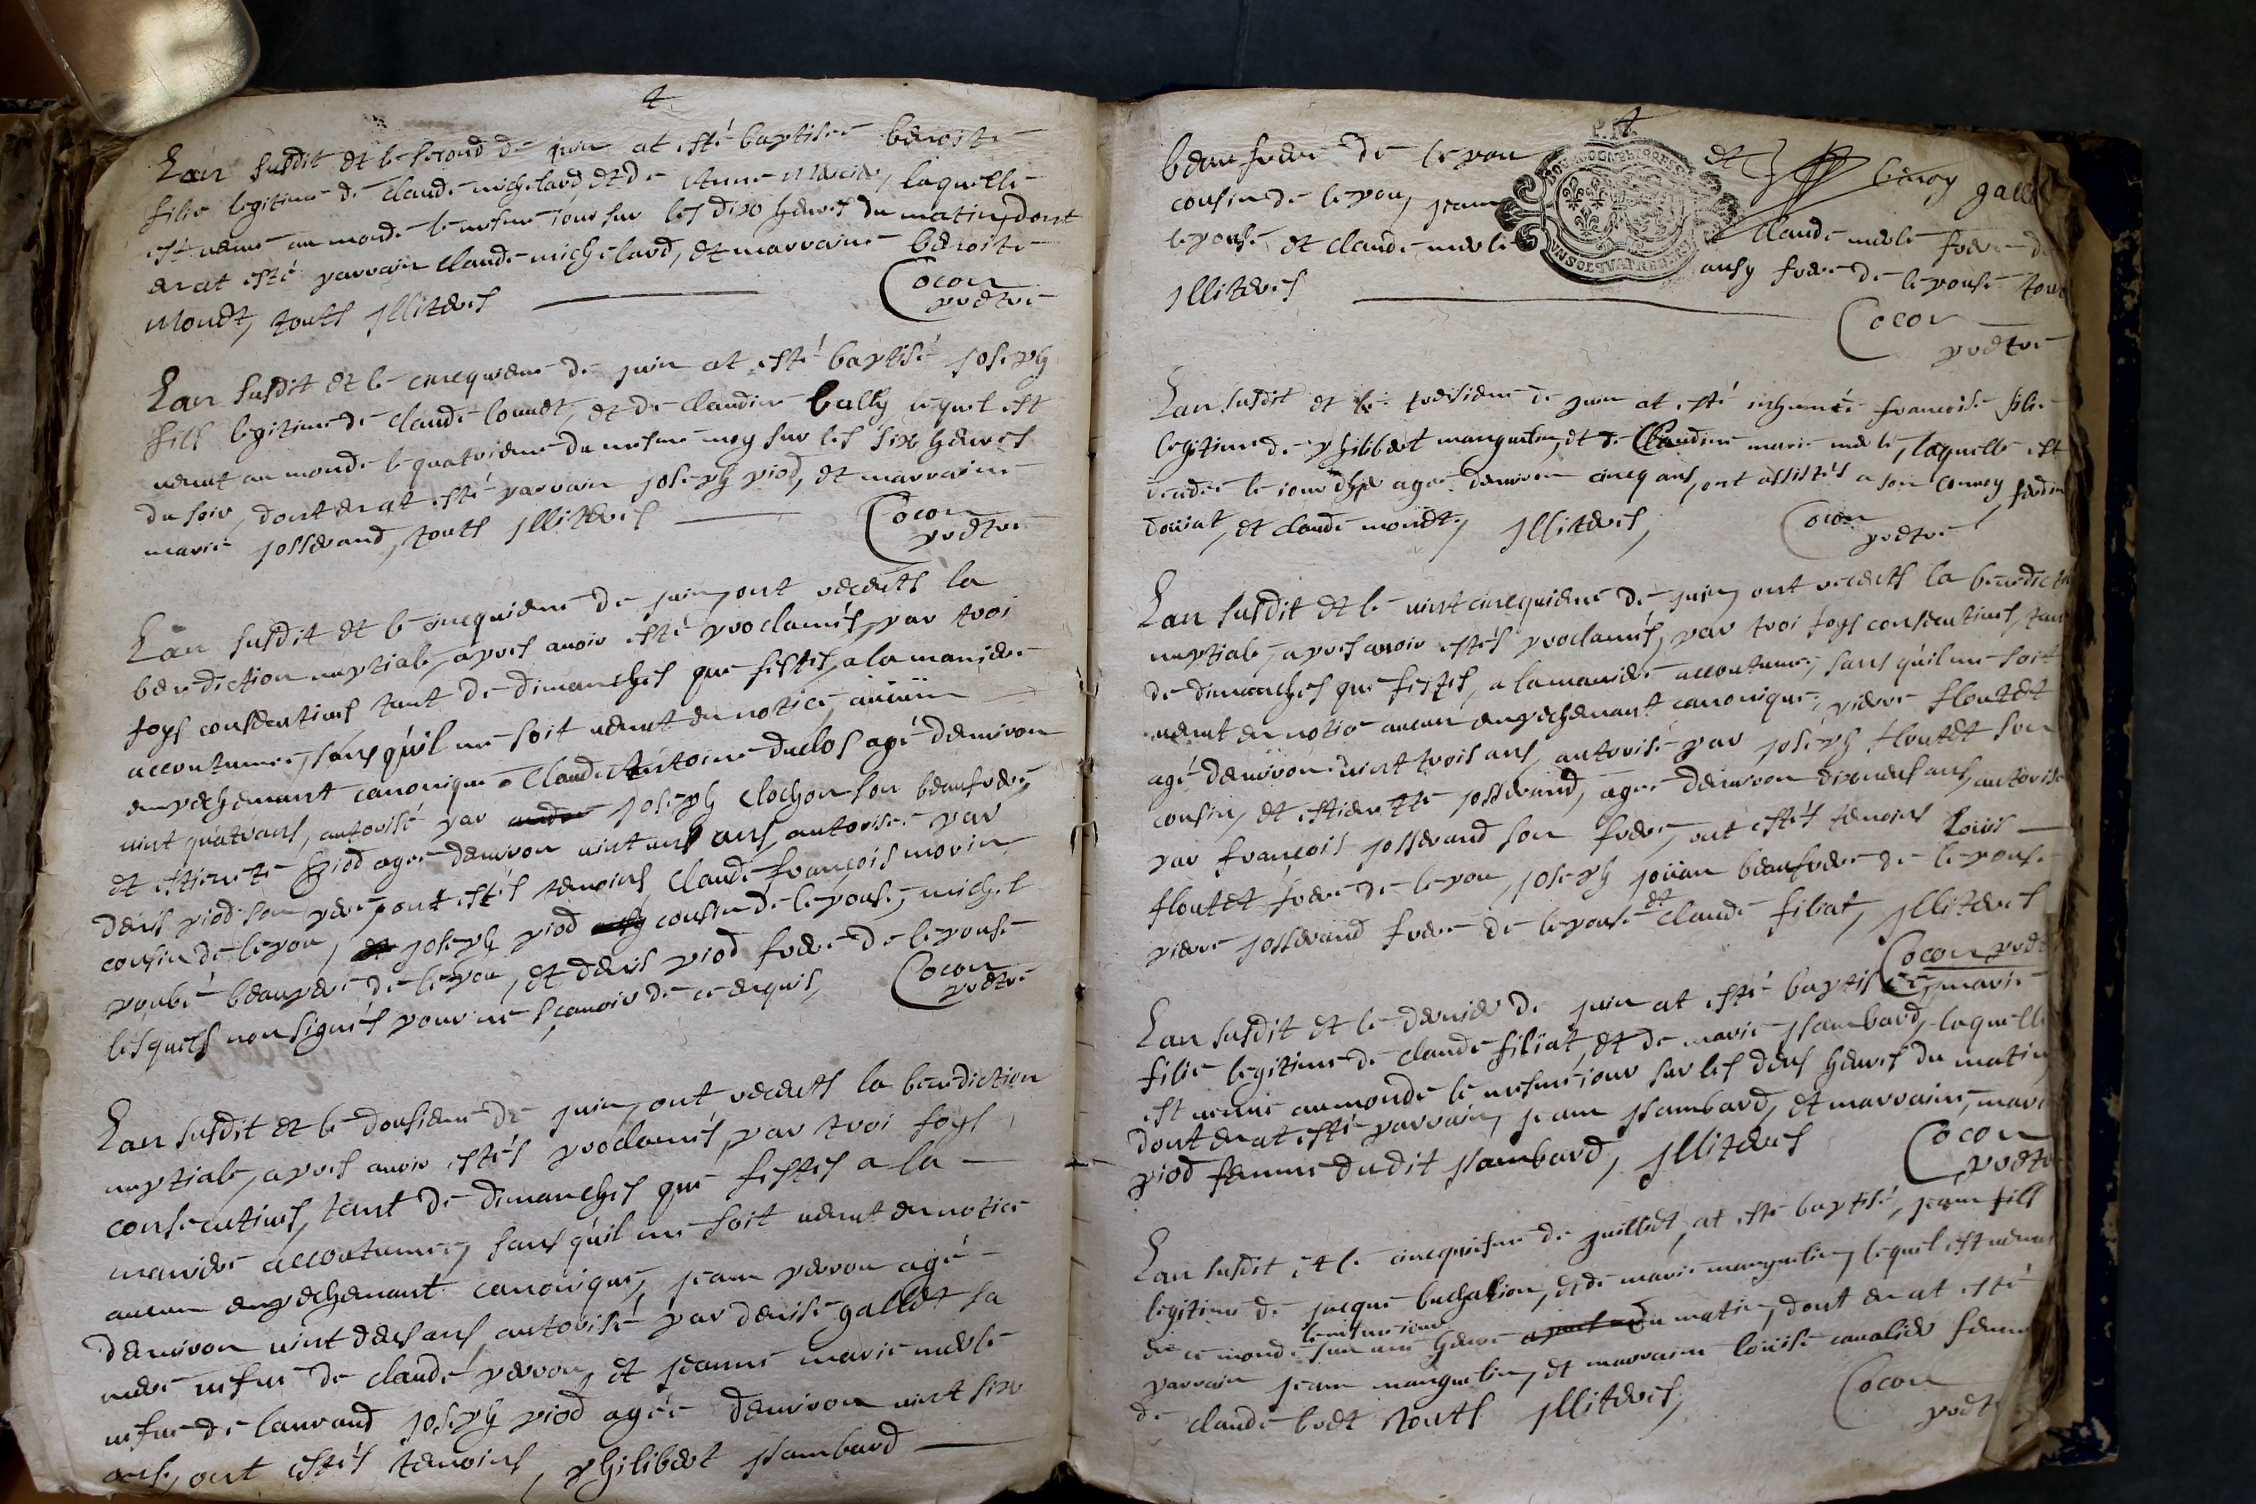 4
Lan susdit et le second de juin at esté baptisée benoiste
fille legitime de claude michelard, et de Anne Merle, laquelle
est venue au monde le mesme iour sur les dixo heures du matin, dont
en at esté parrain claude michelard, et marraine benoiste
Monet, touts jlliteres
Cocon
pretre
Lan susdit et le cincquieme de juin at esté baptisé joseph
fils legitime de claude louuet, et de claudine bally lequel est
venut au monde le quatrieme du mesme moy sur les sixo heures
du soir, dont en at esté parrain joseph piod, et marraine
marie josserand, touts jlliteres
Cocon
pretre
Lan susdit et le cincquieme de juin, ont receuts la
benediction nuptiale, apres auoir esté proclamés, par troi
foys consecutives tant de dimanches que festes, a la maniere
accoutumee, sans qu'il me soit venut en notice, aucun
empechemant canonique Claude Antoine duclos agé denuiron
uint quatr ans, autorisé par joseph clochon son beaufrere,
et estienete piod agee denuiron uint uns ans, autorisee par
denis piod son pere, ont estés temoins claude françois morin
cousin de lepou, joseph piod cousin de lepouse, michel
poubé beaupere de lepou, et denis piod frere de lepouse
lesquels non signés pour ne sçauoir de ce enquis,
Cocon
pretre
Lan susdit et le dousieme de juin, ont receuts la benediction
nuptiale, apres auoir estés proclamés, par troi foys
consecutives, tant de dimanches que festes a la
maniere accoutumee, sans qu'il me soit venut en notice
aucun empechemant canonique, jean perron agé
denuiron uint deus ans autorisé par denise gallet sa
mere uefue de claude perron, et jeanne marie merle
uefue de laurand joseph piod agée denuiron uint sixo
ans, ont estés temoins, philibert jsambard
4
beau frere de lepou et benoy
cousin de lepou, jean claude merle frere de
lepouse, et claude merle ausy frere de lepouse tous
jlliteres
Cocon
pretre
Lan susdit et le tresieme de juin at esté inhumée françoise fille
legitime de philibert manguelin, et de Claudine marie merle, laquelle est
decedée le iour dhyer agee denuiron cincq ans, ont assistés a son conuoy,
douat, et claude monet, jlliteres,
Cocon
pretre
Lan susdit et le uint cincquieme de juin, ont receuts la benedictio
nuptiale, apres auoir estés proclamés, par troi foys consecutives, tant
de dimanches que festes, a la maniere accoutumee, sans qu'il me soit
venut en notice aucun empechemant canonique, pierre floutet
agé denuiron uint trois ans, autorisé par joseph floutet son
cousin, et estienette josserand, agee denuiron dixneus ans, autorisee
par françois josserand son frere, ont estés temoins Louis
floutet frere de lepou, joseph jouan beaufrere de lepouse
pierre josserand frere de lepouse et claude filiat, jlliteres
Cocon pretre
Lan susdit et le dernier de juin at esté baptisée, marie
fille legitime de claude filiat, et de marie jsambard, laquelle
est venue au monde le mesme iour sur les deus heures du matin,
dont en at esté parrain, jean jsambard, et marraine, marie
piod femme dudit jsambard, jlliteres
Cocon
pretre
Lan susdit et le cincquieme de juillet, at esté baptisé, jean fils
legitime de jacque buchalion, et de marie manguelin, lequel est venu
le mesme iour
en ce monde sur une heure du matin, dont en at esté
parrain jean manguelin, et marraine louise caualier femme
de claude boet touts jlliteres,
Cocon
pretre